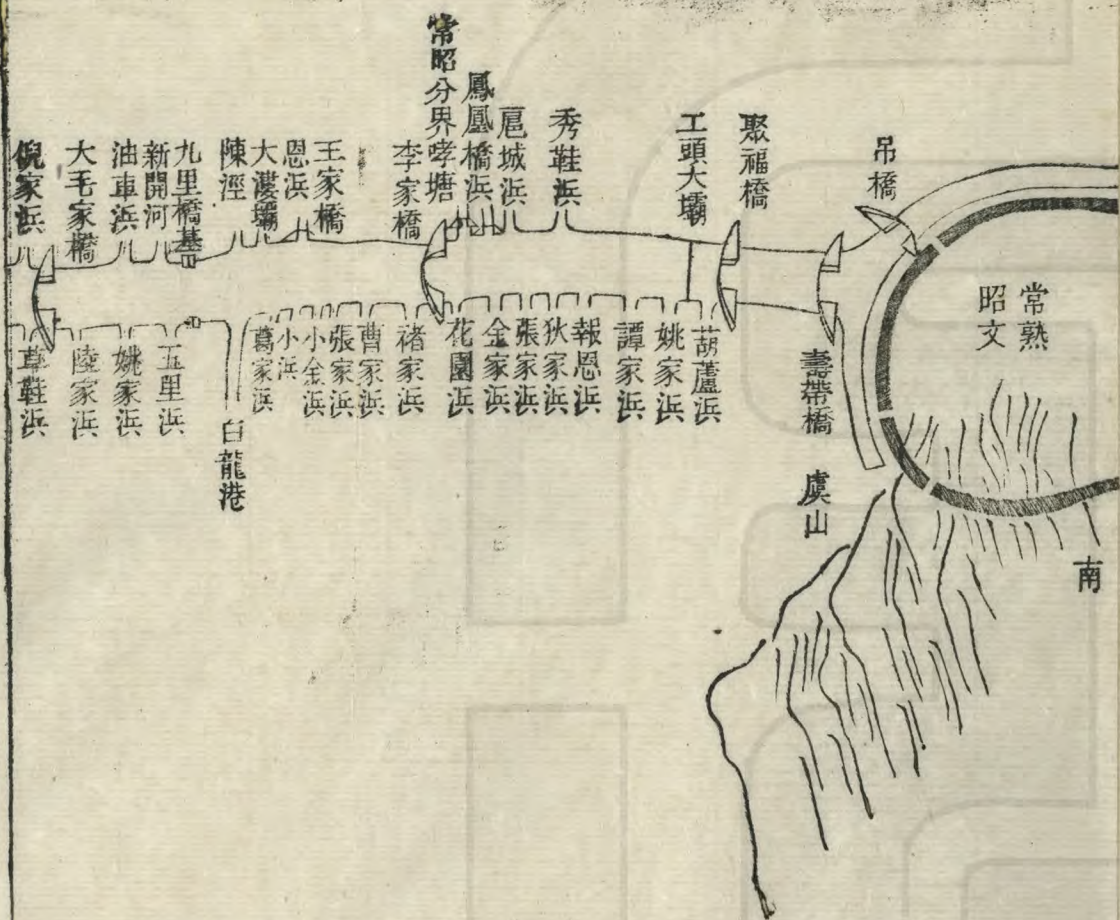 南
常熟
昭文
吊橋
聚福橋
工頭大壩
秀鞋浜
扈城浜
鳳凰橋浜
常昭分界哮塘
李家橋
王家橋
恩浜
大漊壩
陳涇
九里橋基
新開河
油車浜
大毛家橋
倪家浜
壽帶橋
虞山
葫蘆浜
姚家浜
譚家浜
報恩浜
狄家浜
張家浜
金家浜
花園浜
褚家浜
曹家浜
張家浜
小金浜
小浜
葛家浜
白龍港
五里浜
姚家浜
陸家浜
草鞋浜